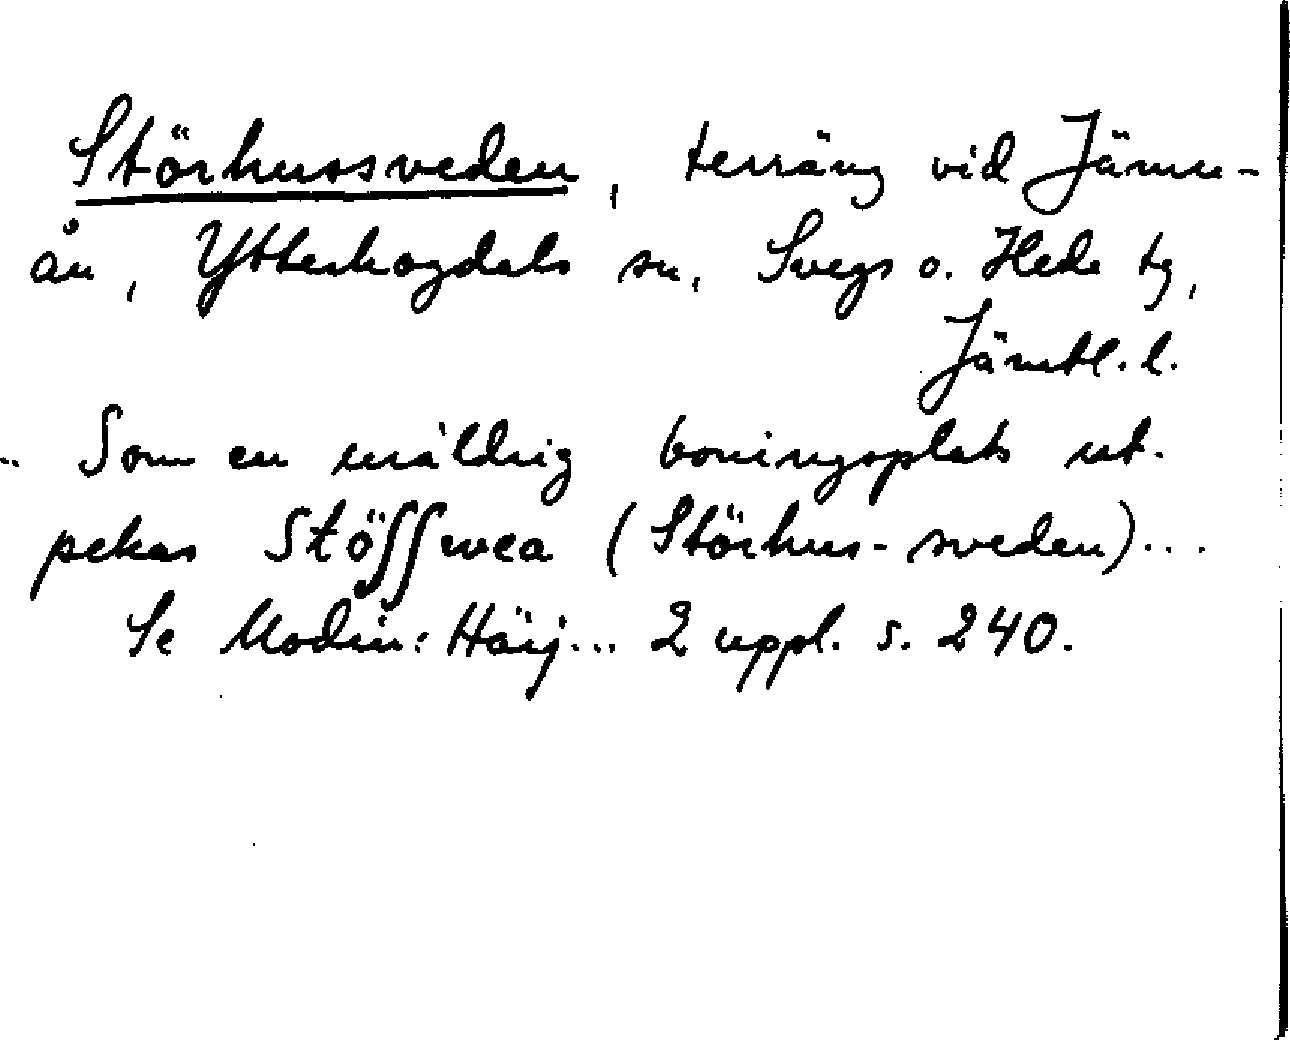 Störhussveden, terräng vid Jämn-
ån, Ytterhogdals sn, Svegs o. Hede tg,
Jämtl. l.
.. Som en uråldrig boningsplats ut-
pekas Stöʃʃwea (Störhus-sveden)...
Se Modin: Härj... 2 uppl. s. 240.